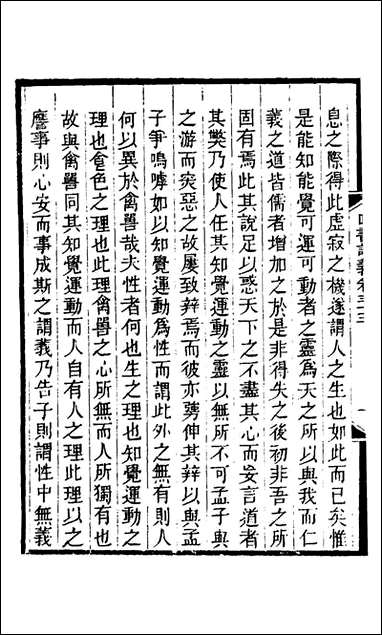 息之際得此虛寂之機遂謂人之生也如此而已矣惟
是能知能覺可運可動者之靈爲天之所以與我而仁
義之道皆儒者增加之於是非得失之後初非吾之所
固有焉此其說足以惑天下之不盡其心而妄言道者
其獘乃使人任其知覺運動之靈以無所不可孟子與
之游而突惡之故屢致辨焉而彼亦勞伸其辨以與孟
子爭嗚嘑如以知覺運動爲性而謂此外之無有則人
何以異於禽獸哉夫性者何也生之理也知覺運動之
理也食色之理也此理禽獸之心所無而人所獨有也
故與禽獸同其知覺運動而人自有人之理此理以之
應事則心安而事成斯之謂義乃告子則謂性中無義
四書訓義卷三十三
一